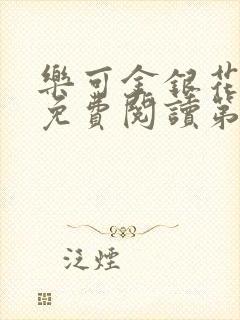 樂可金銀花
免費閱讀第
泛煙